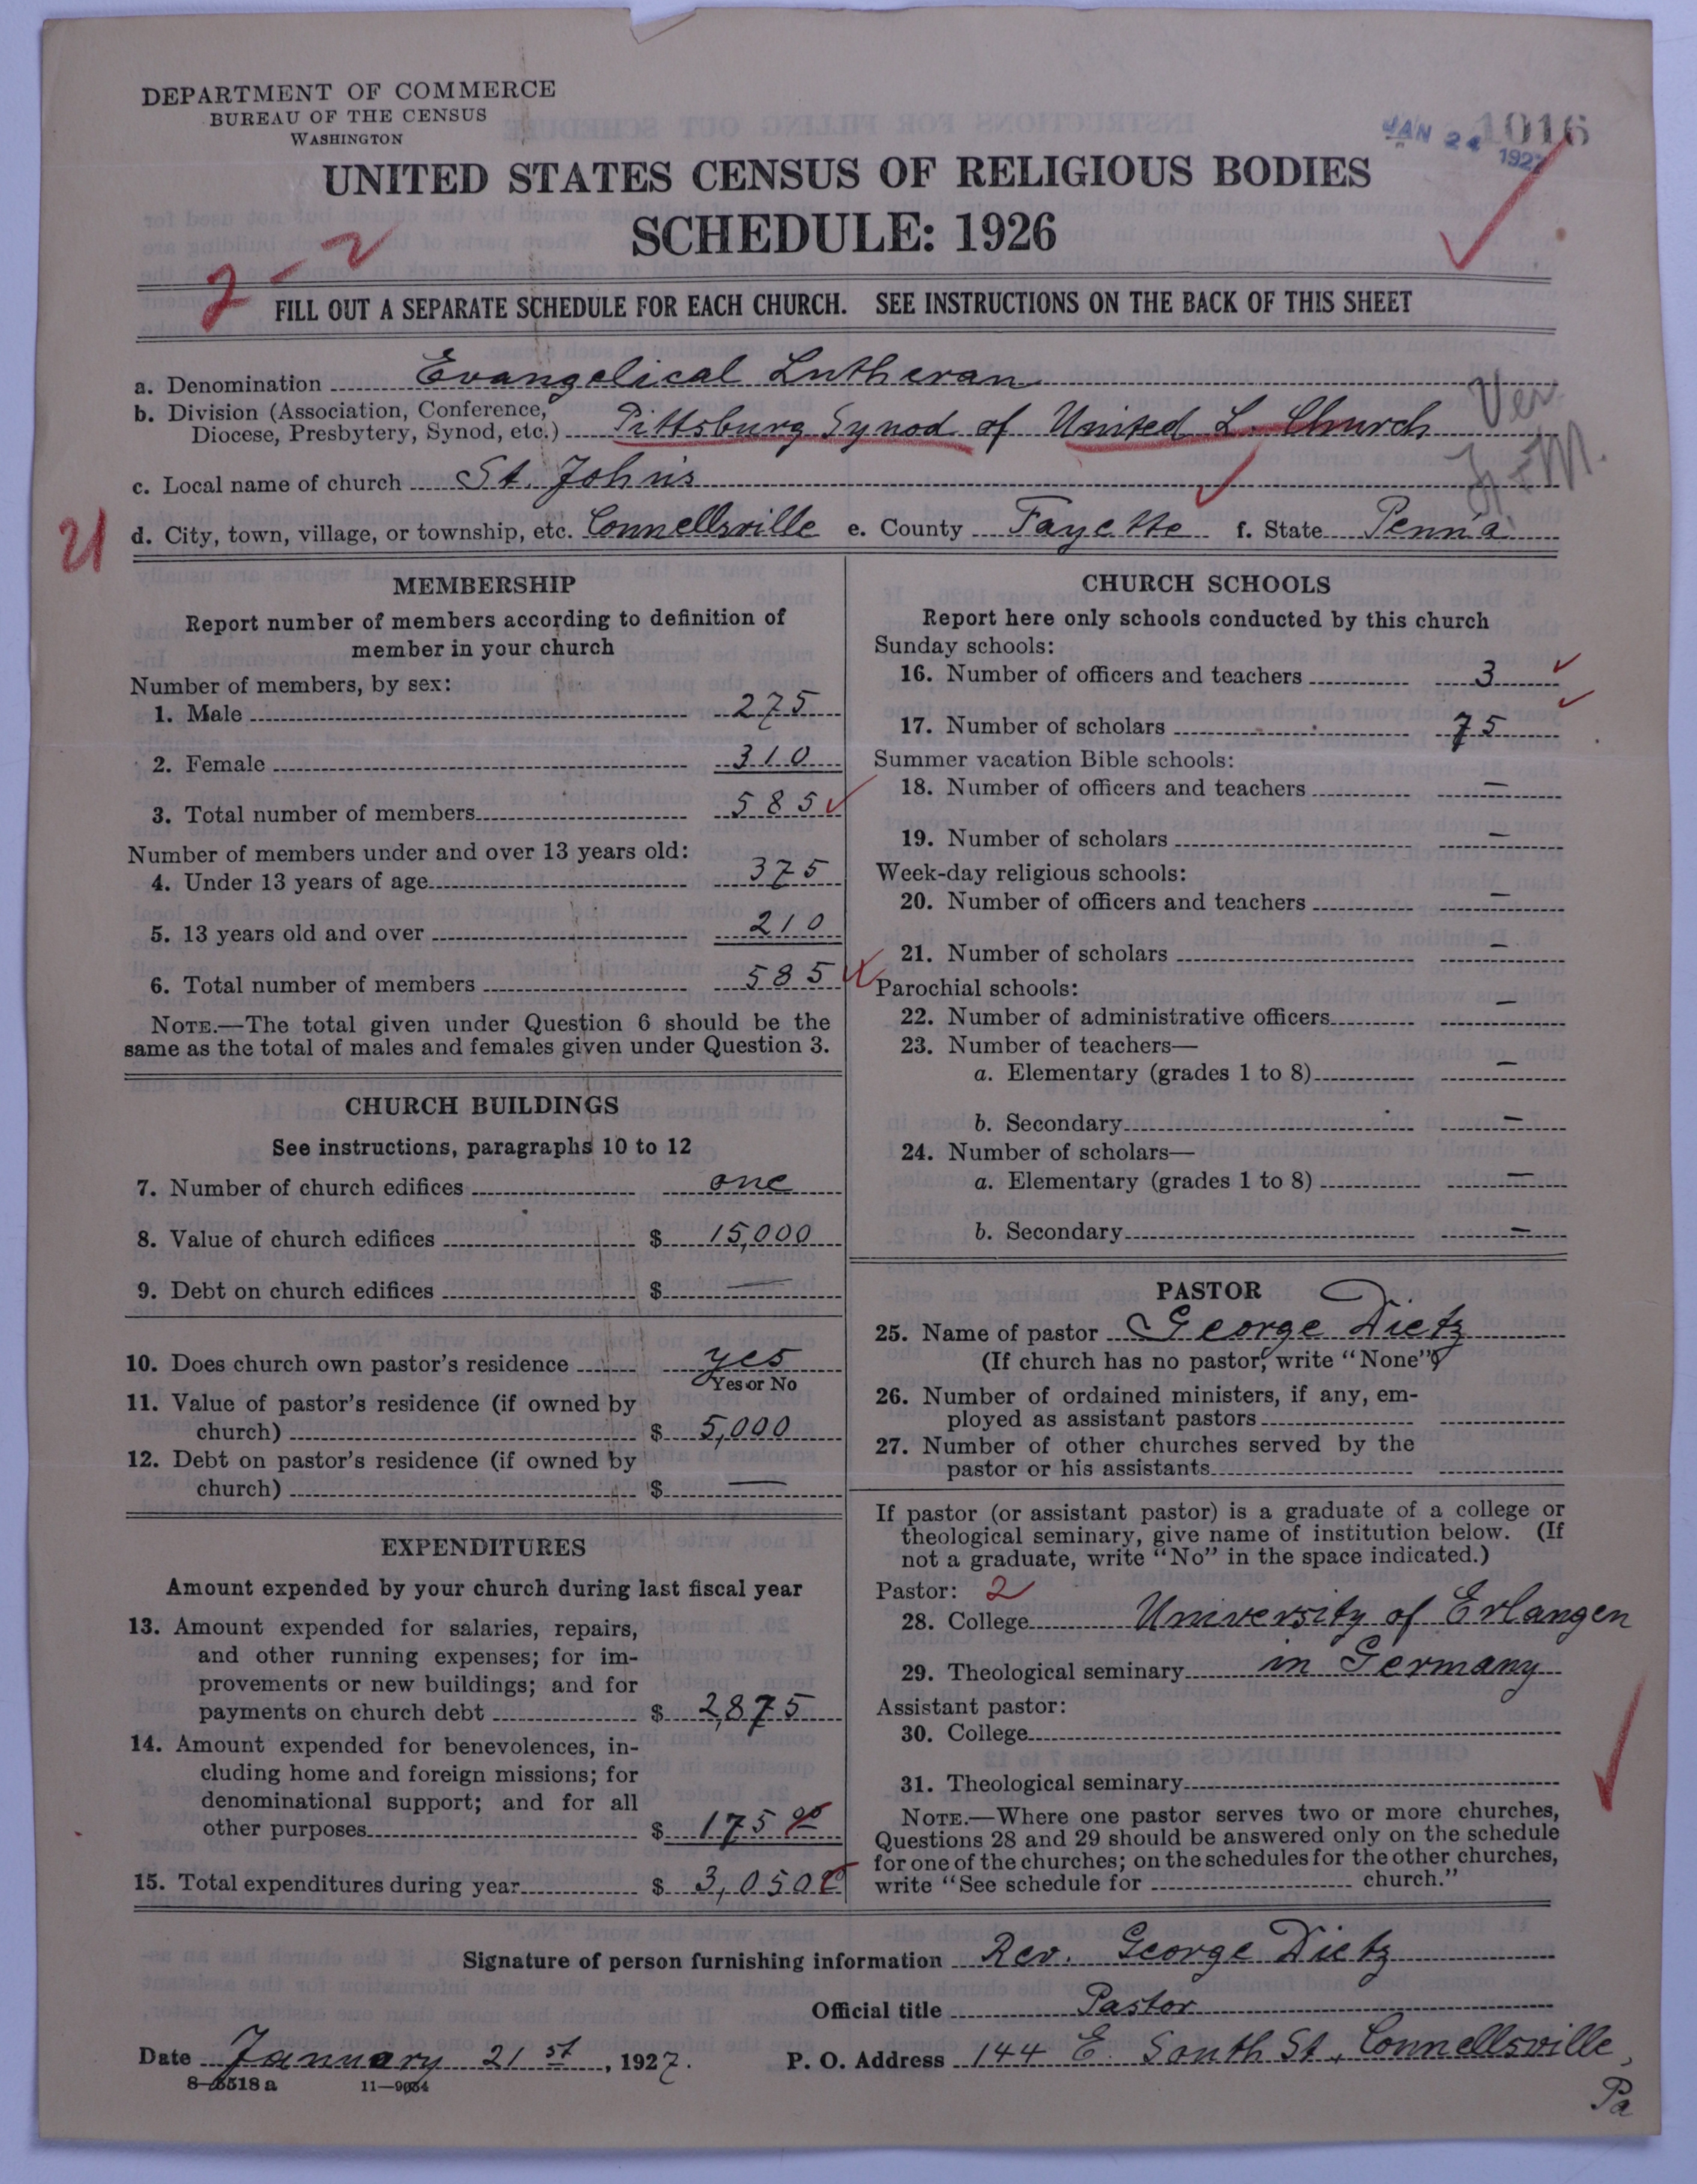 DEPARTMENT OF COMMERCE
BUREAU OF THE CENSUS
WASHINGTON
1016
JAN 24 1927
UNITED STATES CENSUS OF RELIGIOUS BODIES
SCHEDULE: 1926
2-2
FILL OUT A SEPARATE SCHEDULE FOR EACH CHURCH. SEE INSTRUCTIONS ON THE BACK OF THIS SHEET
a. Denomination Evangelical Lutheran
b. Division (Association, Conference,
Diocese, Presbytery, Synod, etc.) Pittsburg Synod of United L. Church
Ver
c. Local name of church St. John's
d. City, town, village, or township, etc. Connellsville e. County Fayette f. State Penn'a
MEMBERSHIP
Report number of members according to definition of
member in your church
Number of members, by sex:
1. Male 275
2. Female 310
3. Total number of members 585
Number of members under and over 13 years old:
4. Under 13 years of age 375
5. 13 years old and over 210
6. Total number of members 585
NOTE.—The total given under Question 6 should be the
same as the total of males and females given under Question 3.
CHURCH BUILDINGS
See instructions, paragraphs 10 to 12
7. Number of church edifices one
8. Value of church edifices $ 15,000
9. Debt on church edifices $ —
10. Does church own pastor's residence yes
Yes or No
11. Value of pastor's residence (if owned by
church) $ 5,000
12. Debt on pastor's residence (if owned by
church) $ —
EXPENDITURES
Amount expended by your church during last fiscal year
13. Amount expended for salaries, repairs,
and other running expenses; for im-
provements or new buildings; and for
payments on church debt $ 2,875
14. Amount expended for benevolences, in-
cluding home and foreign missions; for
denominational support; and for all
other purposes $ 175 00
15. Total expenditures during year $ 3,050
CHURCH SCHOOLS
Report here only schools conducted by this church
Sunday schools:
16. Number of officers and teachers 3
17. Number of scholars 75
Summer vacation Bible schools:
18. Number of officers and teachers —
19. Number of scholars —
Week-day religious schools:
20. Number of officers and teachers —
21. Number of scholars —
Parochial schools:
22. Number of administrative officers —
23. Number of teachers—
a. Elementary (grades 1 to 8) —
b. Secondary —
24. Number of scholars—
a. Elementary (grades 1 to 8) —
b. Secondary —
PASTOR
25. Name of pastor George Dietz
(If church has no pastor, write "None")
26. Number of ordained ministers, if any, em-
ployed as assistant pastors
27. Number of other churches served by the
pastor or his assistants
If pastor (or assistant pastor) is a graduate of a college or
theological seminary, give name of institution below. (If
not a graduate, write "No" in the space indicated.)
Pastor: 2
28. College University of Erlangen
29. Theological seminary in Germany
Assistant pastor:
30. College
31. Theological seminary
NOTE.—Where one pastor serves two or more churches,
Questions 28 and 29 should be answered only on the schedule
for one of the churches; on the schedules for the other churches,
write "See schedule for church."
Signature of person furnishing information Rev. George Dietz
Official title Pastor
Date January 21st, 1927. P. O. Address 144 E. South St., Connellsville,
Pa
8-5518 a 11-9054